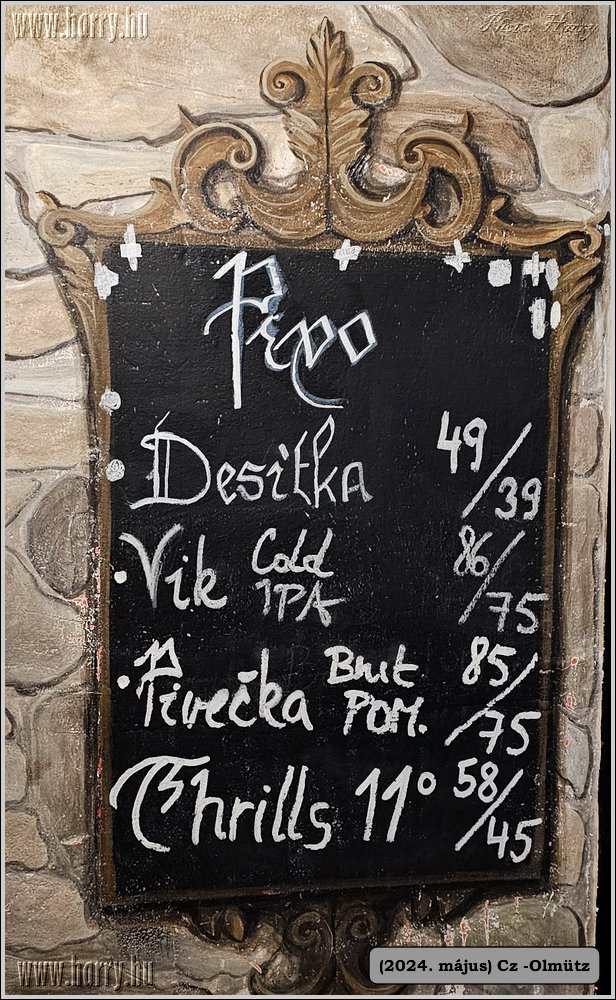 www.horry.hu
Pivo
Desítka 49/39
Vik Cold IPA 86/75
Pivečka Brut POM. 85/75
Thrills 11° 58/45
www.horry.hu
(2024. május) Cz -Olmütz